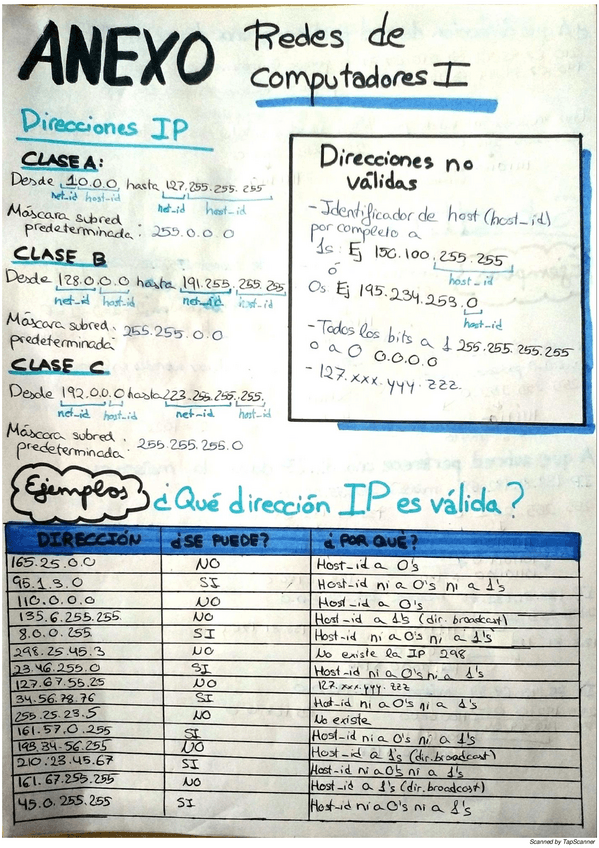 ANEXO Redes de
computadores I
Direcciones IP
CLASE A:
Desde 1.0.0.0 hasta 127.255.255.255
net_id host_id net_id host_id
Máscara subred
predeterminada: 255.0.0.0
CLASE B
Desde 128.0.0.0 hasta 191.255.255.255
net_id host_id net_id host_id
Máscara subred:
predeterminada 255.255.0.0
CLASE C
Desde 192.0.0.0 hasta 223.255.255.255
net_id host_id net_id host_id
Máscara subred:
predeterminada 255.255.255.0
Direcciones no
válidas
- Identificador de host (host_id)
por completo a
1s: Ej 150.100.255.255
host_id
ó
0s Ej 195.234.253.0
host_id
- Todos los bits a 1 255.255.255.255
o a 0 0.0.0.0
- 127.xxx.yyy.zzz
Ejemplos ¿Qué dirección IP es válida?
DIRECCIÓN ¿SE PUEDE? ¿POR QUÉ?
165.25.0.0 NO Host_id a 0's
95.1.3.0 SI Host_id ni a 0's ni a 1's
110.0.0.0 NO Host_id a 0's
135.6.255.255 NO Host_id a 1's (dir. broadcast)
8.0.0.255 SI Host_id ni a 0's ni a 1's
298.25.45.3 NO No existe la IP 298
23.46.255.0 SI Host_id ni a 0's ni a 1's
127.67.55.25 NO 127.xxx.yyy.zzz
34.56.78.76 SI Host_id ni a 0's ni a 1's
255.25.23.5 NO No existe
161.57.0.255 SI Host_id ni a 0's ni a 1's
198.34.56.255 NO Host_id a 1's (dir. broadcast)
210.23.45.67 SI Host_id ni a 0's ni a 1's
161.67.255.255 NO Host_id a 1's (dir. broadcast)
45.0.255.255 SI Host_id ni a 0's ni a 1's
Scanned by TapScanner